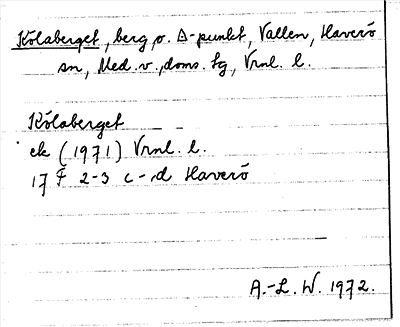 Kölaberget, berg o. Δ-punkt, Vallen, Haverö
sn, Med. v., doms. tg, Vrnl. l.
Kölaberget
ek (1971) Vrnl. l.
17 F 2-3 c-d Haverö
A.-L. W. 1972.